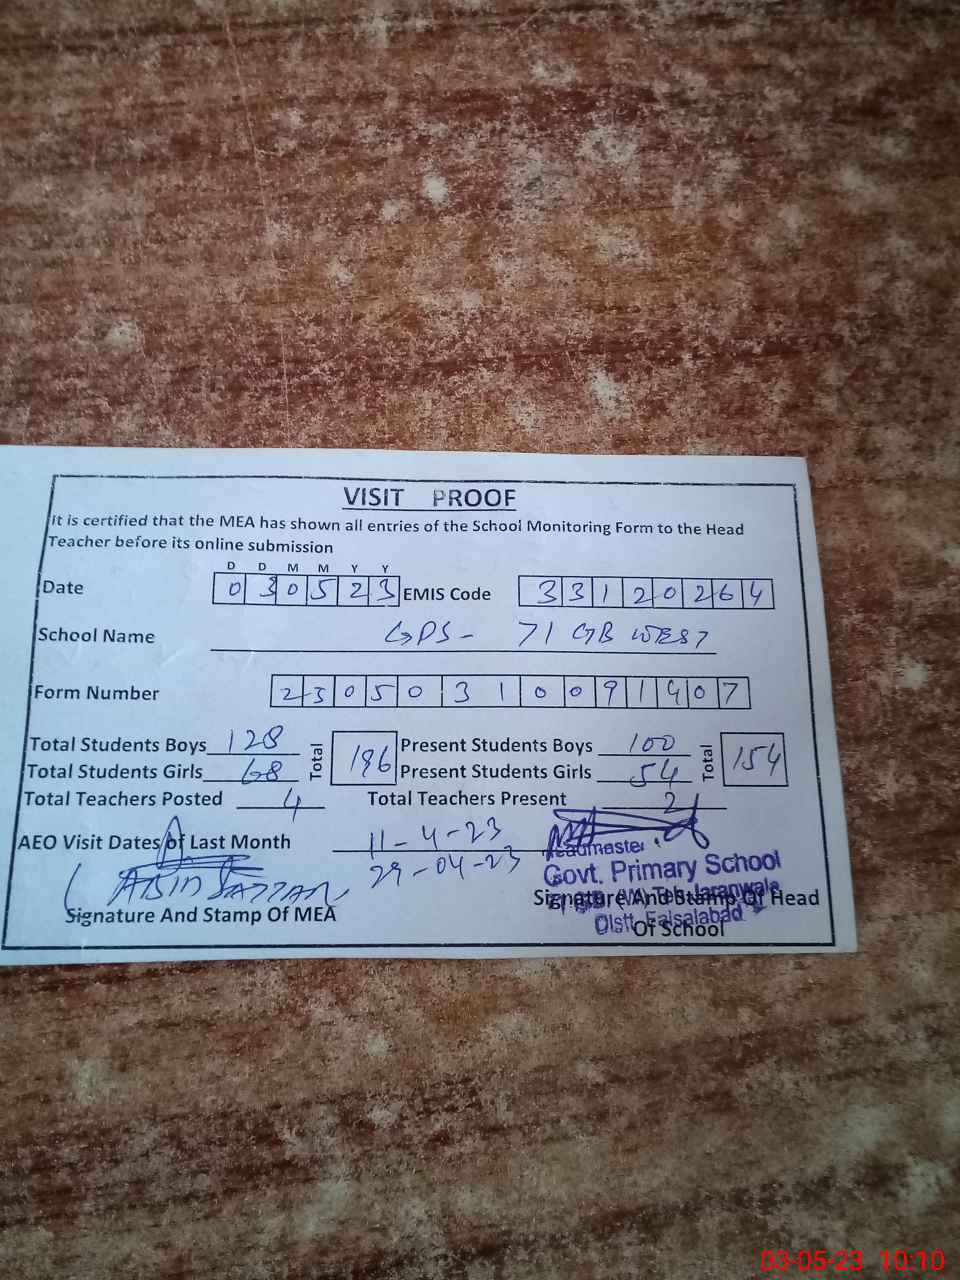 VISIT PROOF
It is certified that the MEA has shown all entries of the School Monitoring Form to the Head
Teacher before its online submission
D D M M Y Y
Date 0 3 0 5 2 3 EMIS Code 3 3 1 2 0 2 6 4
School Name GPS - 71 GB WEST
Form Number 2 3 0 5 0 3 1 0 0 9 1 4 0 7
Total Students Boys 128 Total 196 Present Students Boys 100 Total 154
Total Students Girls 68 Present Students Girls 54
Total Teachers Posted 4 Total Teachers Present 2
AEO Visit Dates of Last Month 11-4-23
29-04-23
Headmaster
Govt. Primary School
ABID SATTAR
Signature And Stamp Of MEA
Signature And Stamp Of Head
Of School
(W) Teh. Jaranwala
Distt. Faisalabad
03-05-23 10:10